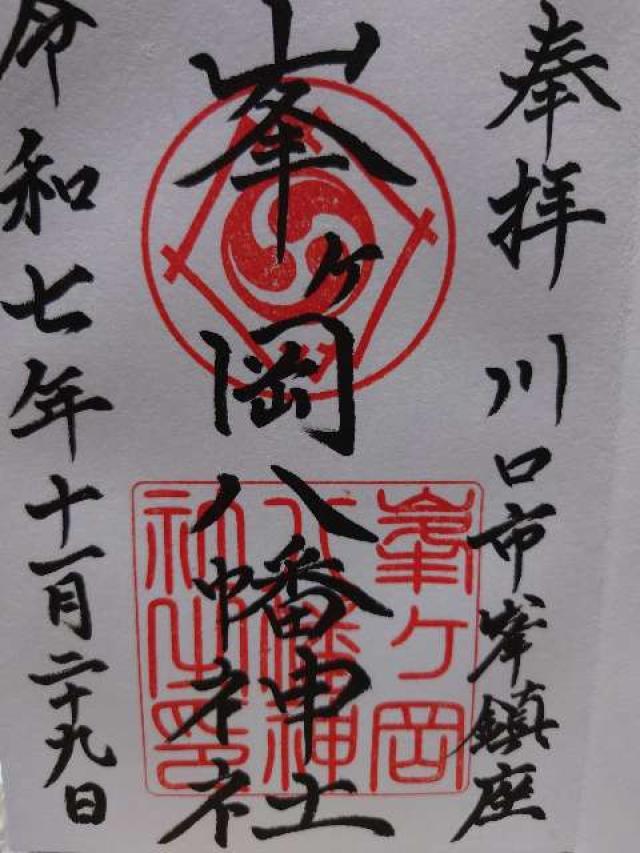 奉拝 川口市峯鎮座
峯ヶ岡八幡神社
令和七年十一月二十九日
峯ヶ岡
八幡神
社之印